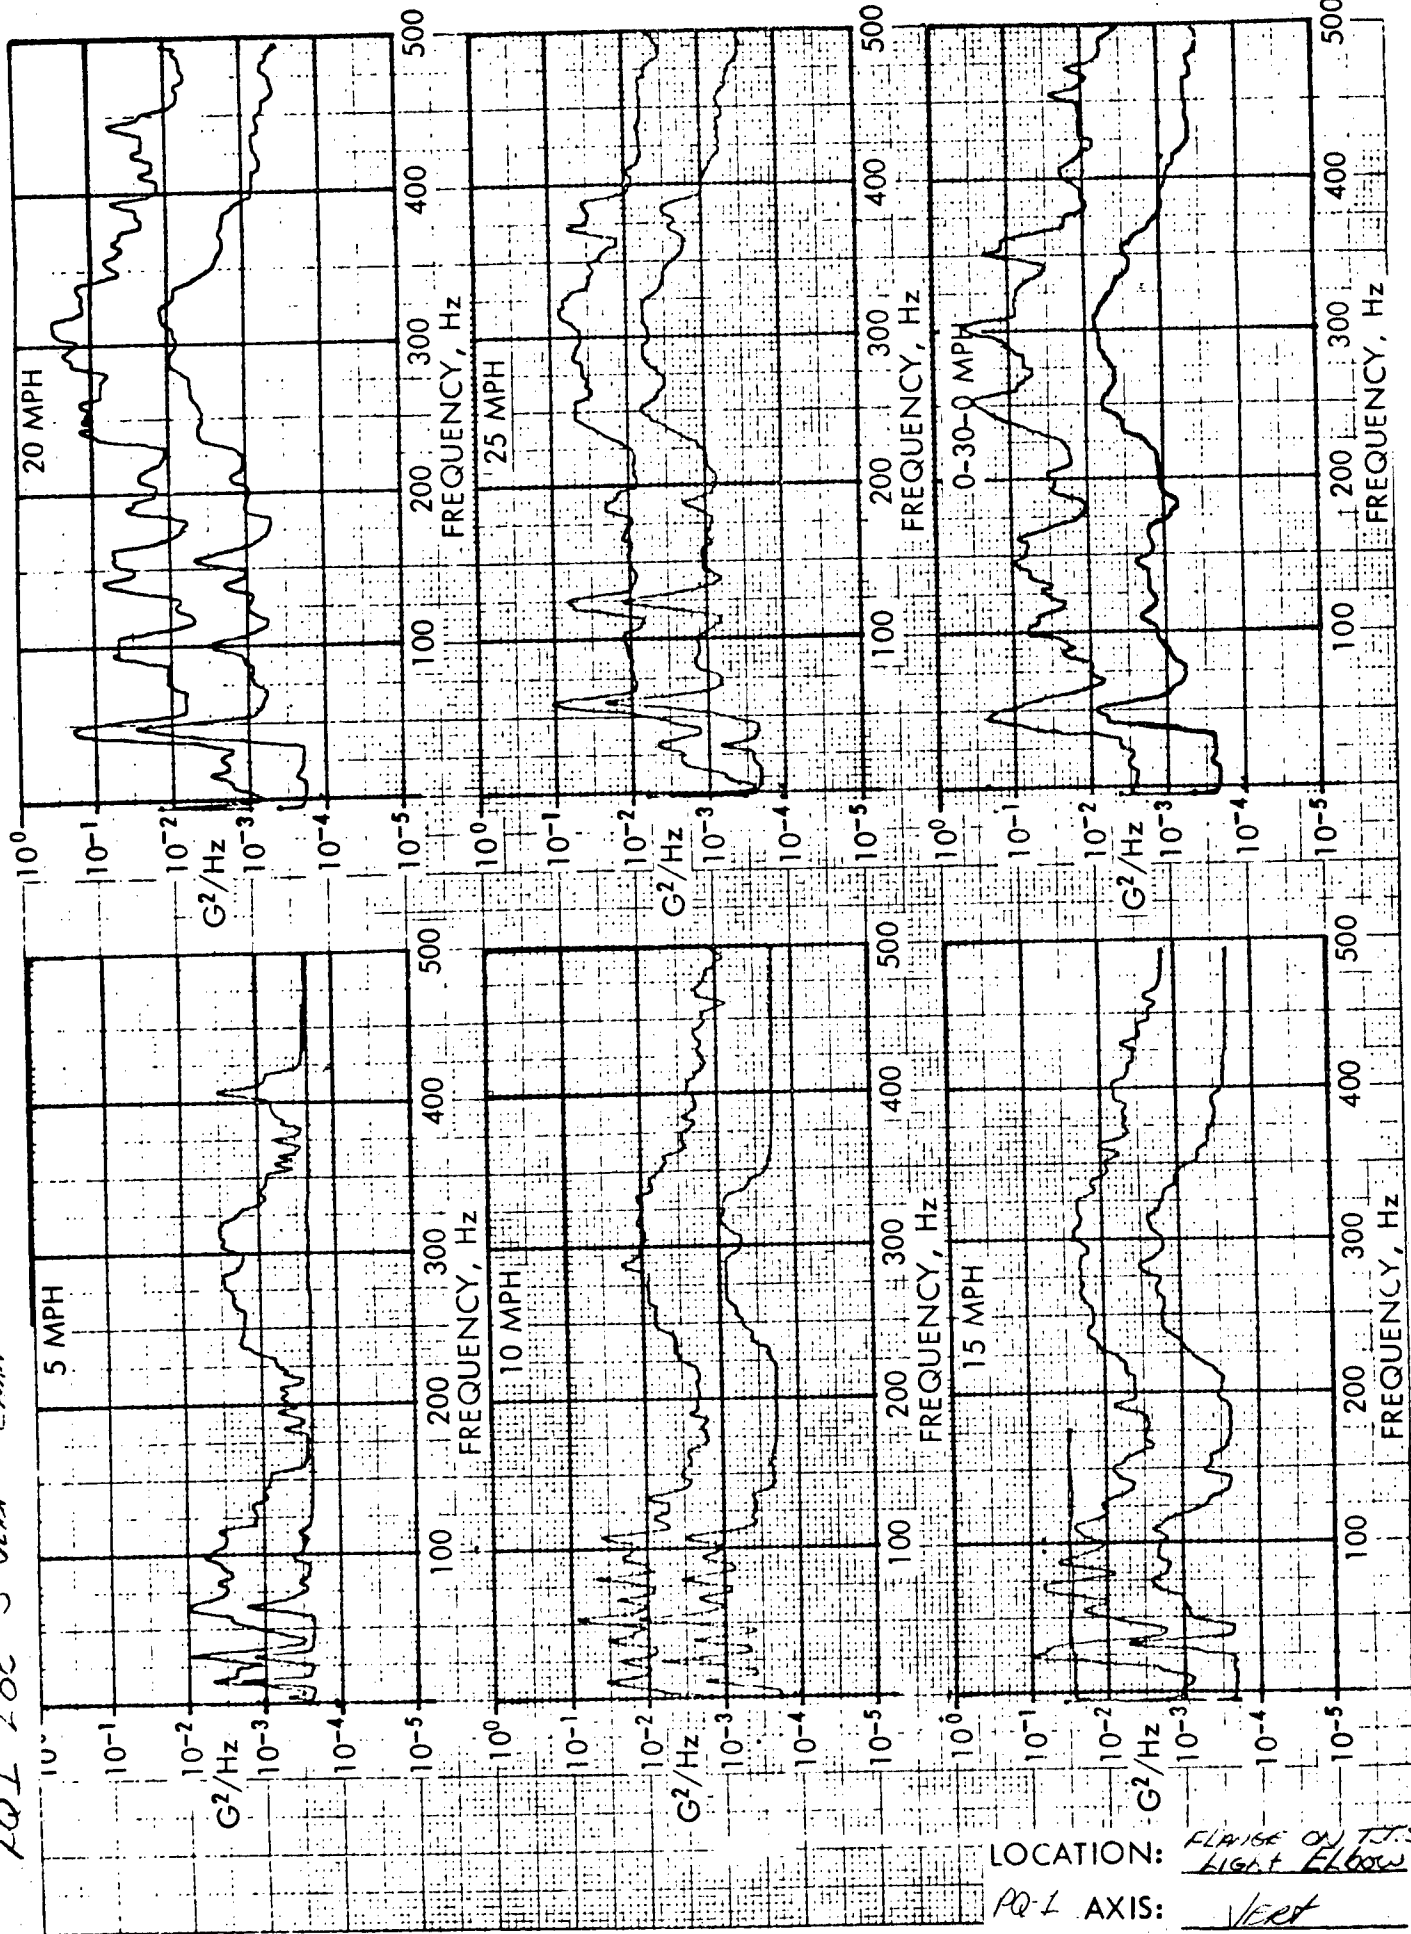 PQ1 LOC 3
5 MPH
10⁰
10⁻¹
10⁻²
G²/Hz
10⁻³
10⁻⁴
10⁻⁵
100 200 300 400 500
FREQUENCY, Hz
10 MPH
10⁰
10⁻¹
10⁻²
G²/Hz
10⁻³
10⁻⁴
10⁻⁵
100 200 300 400 500
FREQUENCY, Hz
15 MPH
10⁰
10⁻¹
10⁻²
G²/Hz
10⁻³
10⁻⁴
10⁻⁵
100 200 300 400 500
FREQUENCY, Hz
20 MPH
10⁰
10⁻¹
10⁻²
G²/Hz
10⁻³
10⁻⁴
10⁻⁵
100 200 300 400 500
FREQUENCY, Hz
25 MPH
10⁰
10⁻¹
10⁻²
G²/Hz
10⁻³
10⁻⁴
10⁻⁵
100 200 300 400 500
FREQUENCY, Hz
0-30-0 MPH
10⁰
10⁻¹
10⁻²
G²/Hz
10⁻³
10⁻⁴
10⁻⁵
100 200 300 400 500
FREQUENCY, Hz
LOCATION: FLANGE ON
Light Elbow
PQ-1 AXIS: VERT